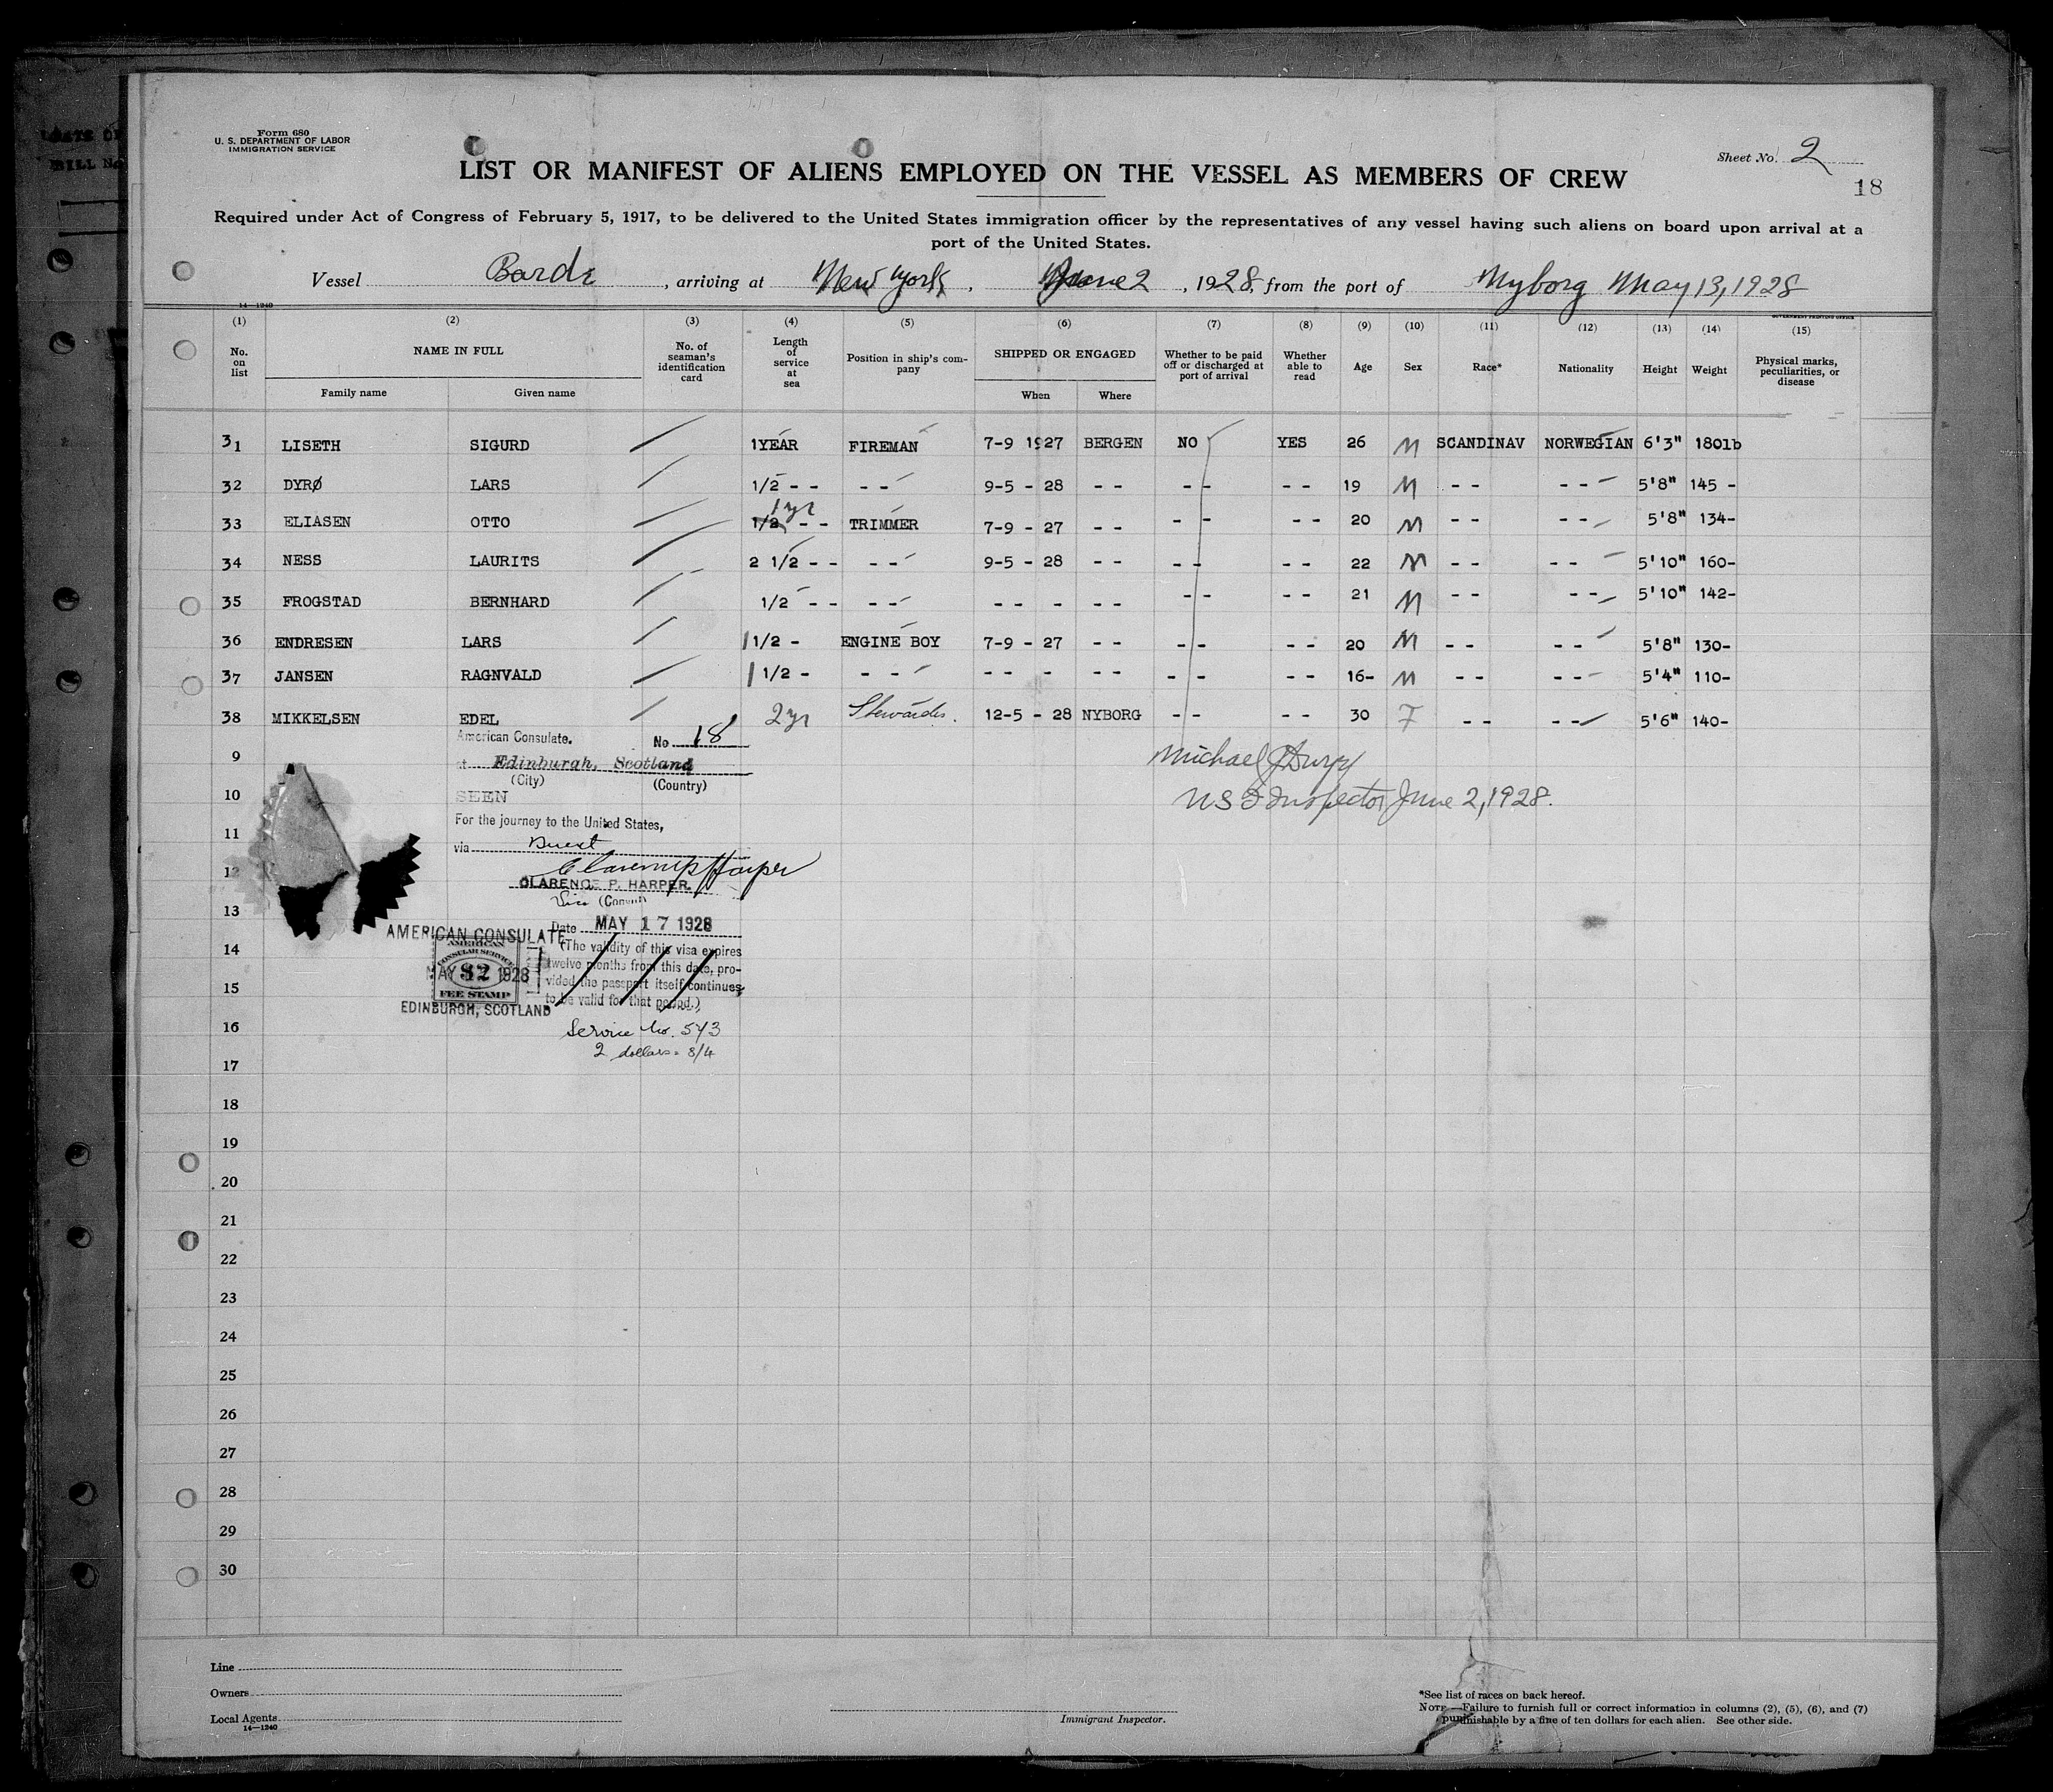 Form 680
U. S. DEPARTMENT OF LABOR
IMMIGRATION SERVICE
Sheet No. 2
18
LIST OR MANIFEST OF ALIENS EMPLOYED ON THE VESSEL AS MEMBERS OF CREW
Required under Act of Congress of February 5, 1917, to be delivered to the United States immigration officer by the representatives of any vessel having such aliens on board upon arrival at a
port of the United States.
Vessel Bard, arriving at New York, June 2, 1928, from the port of Nyborg May 13, 1928
14—1240
GOVERNMENT PRINTING OFFICE
(1) (2) (3) (4) (5) (6) (7) (8) (9) (10) (11) (12) (13) (14) (15)
No. on list
NAME IN FULL
Family name
Given name
No. of seaman's identification card
Length of service at sea
Position in ship's com-pany
SHIPPED OR ENGAGED
When
Where
Whether to be paid off or discharged at port of arrival
Whether able to read
Age
Sex
Race*
Nationality
Height
Weight
Physical marks, peculiarities, or disease
31 LISETH SIGURD 1YEAR FIREMAN 7-9 1927 BERGEN NO YES 26 M SCANDINAV NORWEGIAN 6'3" 180lb
32 DYRØ LARS 1/2 - - - - 9-5 - 28 - - - - - - 19 M - - - - 5'8" 145 -
33 ELIASEN OTTO 1/2 1 yr - - TRIMMER 7-9 - 27 - - - - - - 20 M - - - - 5'8" 134-
34 NESS LAURITS 2 1/2 - - - - 9-5 - 28 - - - - - - 22 M - - - - 5'10" 160-
35 FROGSTAD BERNHARD 1/2 - - - - - - - - - - - - - 21 M - - - - 5'10" 142-
36 ENDRESEN LARS 1 1/2 - ENGINE BOY 7-9 - 27 - - - - - - 20 M - - - - 5'8" 130-
37 JANSEN RAGNVALD 1 1/2 - - - - - - - - - - - - 16- M - - - - 5'4" 110-
38 MIKKELSEN EDEL 2 yr Stewardes. 12-5 - 28 NYBORG - - - - 30 F - - - - 5'6" 140-
American Consulate.
No 18
at Edinburgh, Scotland
(City) (Country)
SEEN
For the journey to the United States,
via Direct
Clarence P Harper
CLARENCE P. HARPER.
Vice (Consul)
Date MAY 17 1928
(The validity of this visa expires
twelve months from this date, pro-
vided the passport itself continues
to be valid for that period.)
AMERICAN CONSULATE
AMERICAN
CONSULAR SERVICE
$2
MAY 17 1928
FEE STAMP
EDINBURGH, SCOTLAND
Service No. 543
2 dollars = 8/4
Michael J
US I Inspector June 2, 1928.
9
10
11
12
13
14
15
16
17
18
19
20
21
22
23
24
25
26
27
28
29
30
Line
Owners
Local Agents
14—1240
Immigrant Inspector.
*See list of races on back hereof.
NOTE.—Failure to furnish full or correct information in columns (2), (5), (6), and (7)
punishable by a fine of ten dollars for each alien. See other side.